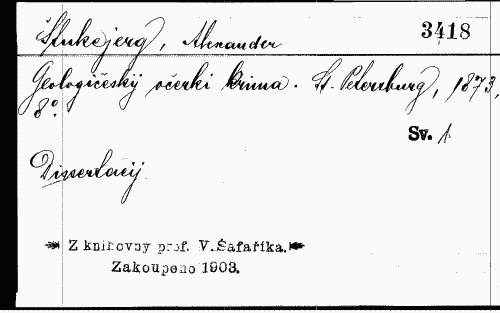 Štukejerg, Alexander
3418
Geologičeskij očerki krima. St. Petersburg, 1873,
8°.
Sv. 1
Dissertacij.
Z knihovny prof. V. Šafaříka.
Zakoupeno 1903.